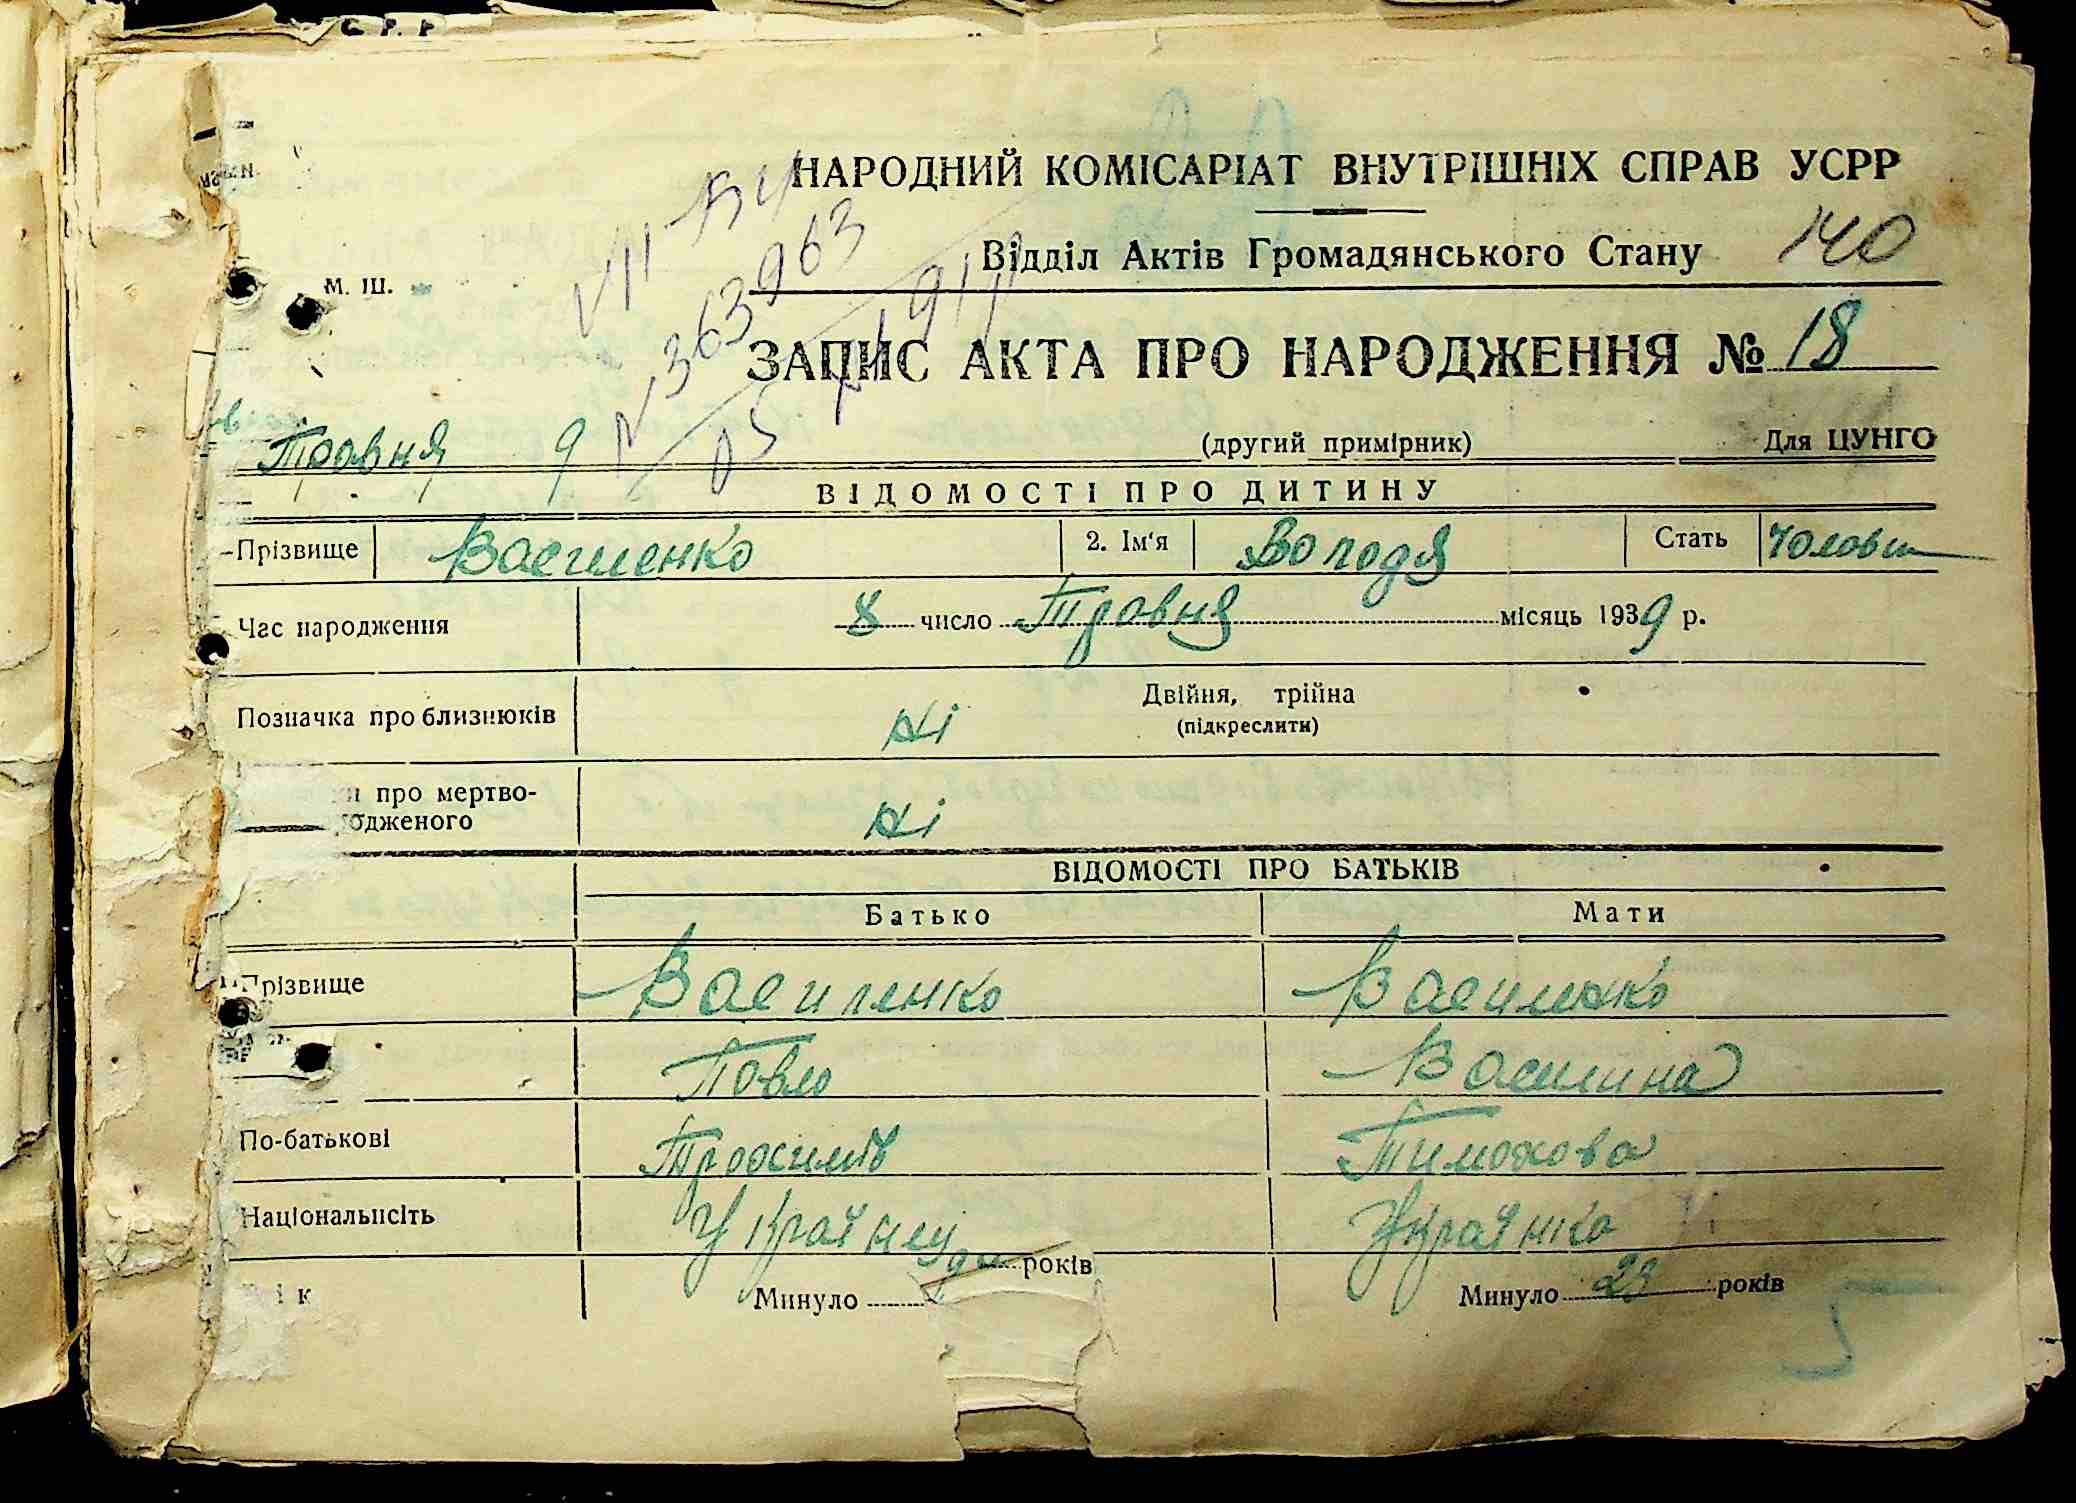 НАРОДНИЙ КОМІСАРІАТ ВНУТРІШНІХ СПРАВ УСРР
Відділ Актів Громадянського Стану 140
м. Ш.
VII БИ
N 363963
ЗАПИС АКТА ПРО НАРОДЖЕННЯ № 18
Травня 9 (другий примірник) Для ЦУНГО
ВІДОМОСТІ ПРО ДИТИНУ
Прізвище Василенко 2. Ім'я Володя Стать Чолов
Час народження 8 число Травня місяць 1939 р.
Позначка про близнюків ні Двійня, трійна
(підкреслити)
про мертво-
одженого ні
ВІДОМОСТІ ПРО БАТЬКІВ
Батько Мати
Прізвище Василенко Василенко
Павло Василина
По-батькові Тимохова
Національність Українка
ік Минуло років Минуло 23 років